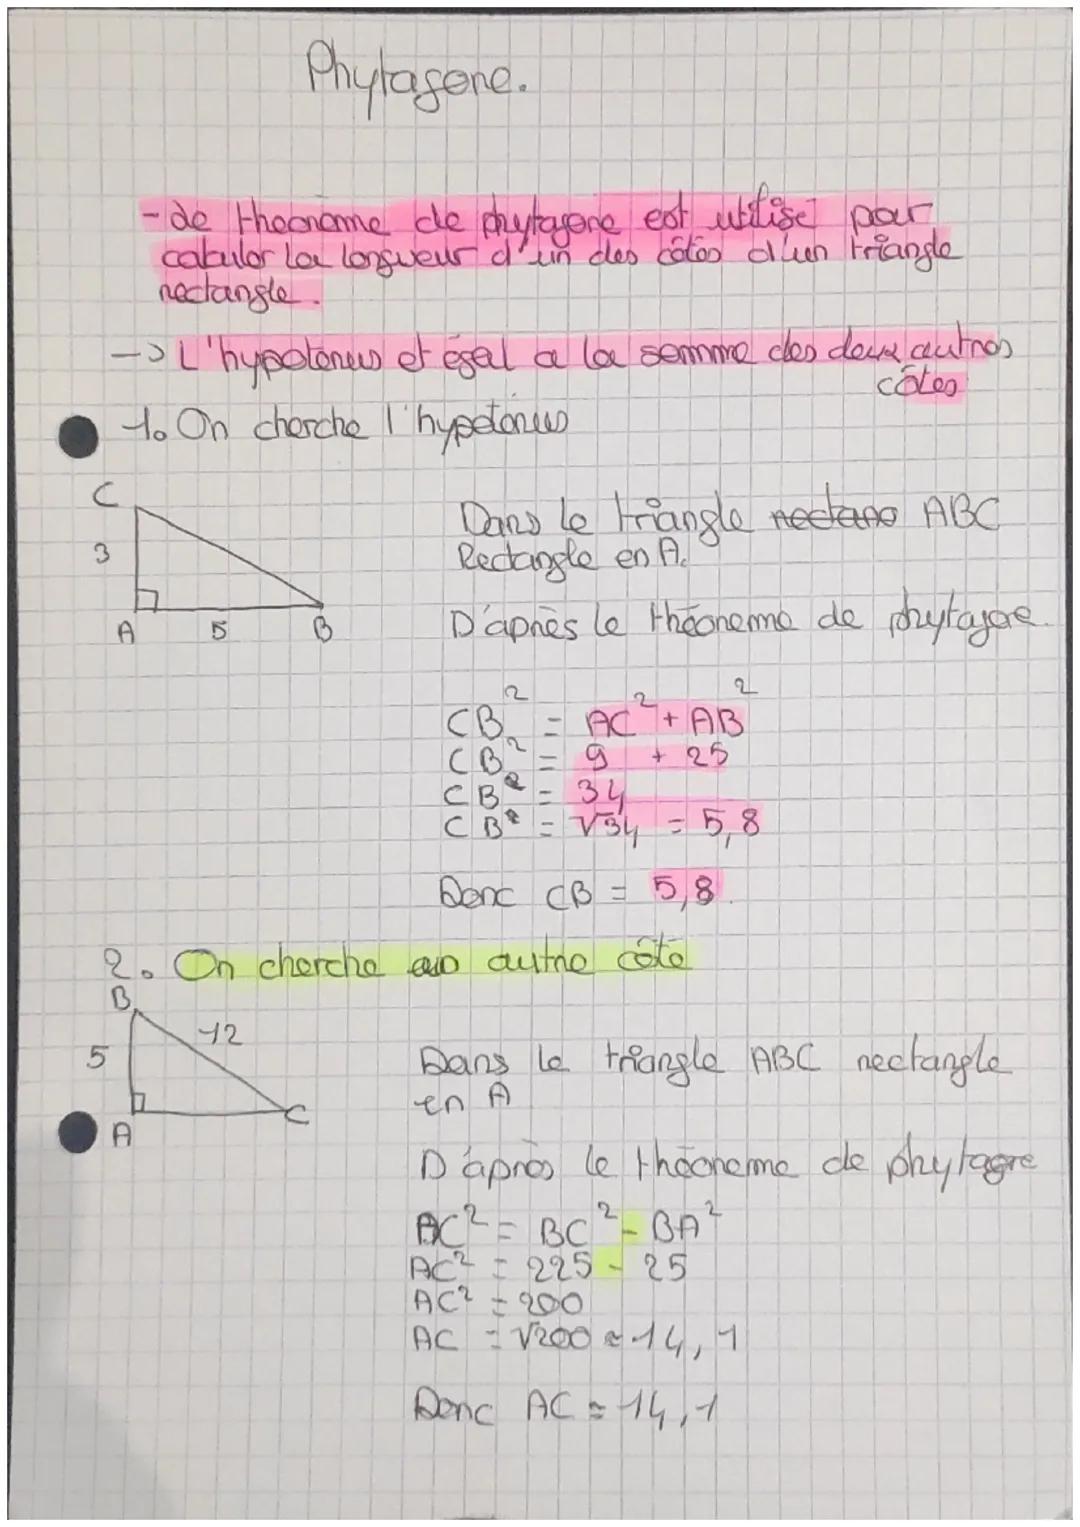 Phytagore.
- Le theoreme de phytagore est utilisé pour
calculer la longueur d'un des côtés d'un triangle
rectangle.
-> L'hypotenus et égal a la somme des deux autres
côtes
1. On cherche l'hypotenus
C
3
A 5 B
Dans le triangle rectang ABC
Rectangle en A.
D'après le théoreme de phytagore.
CB² = AC² + AB²
CB² = 9 + 25
CB² = 34
CB² = √34 = 5,8
Donc CB = 5,8.
2. On cherche un autre côte
B
12
5
A C
Dans le triangle ABC rectangle
en A
D'après le théoreme de phytagre
AC² = BC² - BA²
AC² = 225 - 25
AC² = 200
AC = √200 ≈ 14,1
Donc AC ≈ 14,1